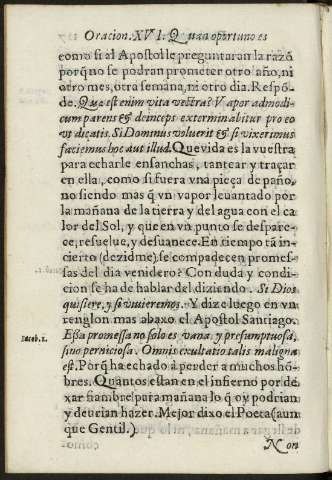 Oracion. XVI. Quan oportuno es
como si al Apostol le preguntaran la razõ
porq̃ no se podran prometer otro año, ni
otro mes, otra semana, ni otro dia. Respõ-
de. Quæ est enim vita vestra? Vapor ad modi-
cum parens & deinceps exterminabitur pro eo
vt dicatis. Si Dominus voluerit & si vixerimus
faciemus hoc aut illud. Que vida es la vuestra
para echarle ensanchas, tantear y traçar
en ella, como si fuera vna pieça de paño,
no siendo mas q̃ vn vapor leuantado por
la mañana de la tierra y del agua con el ca
lor del Sol, y que en vn punto se despare-
ce, resuelue, y desuanece. En tiempo tã in-
cierto (dezidme) se compadecen promes-
sas del dia venidero? Con duda y condi-
cion se ha de hablar del diziendo. Si Dios
quisiere, y si viuieremos. Y dize luego en vn
renglon mas abaxo el Apostol Santiago.
Iacob. 1.
Essa promessa no solo es vana, y presumptuosa,
sino perniciosa. Omnis exultatio talis maligna
est. Porq̃ ha echado à perder a muchos hõ-
bres. Quantos estan en el infierno por de
xar siambre para mañana lo q̃ oy podrian
y deurian hazer. Mejor dixo el Poeta (aun
que Gentil.)
Non